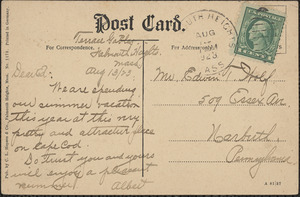 Post Card.
For Correspondence.
For Address Only.
Terrace Gables
Falmouth Heights
Mass
Aug 13/23.
AUG
MASS
Mr. Edwin I. Wolf
309 Essex Av.
Narberth
Pennsylvania
Dear
We are spending
our summer vacation
this year at this very
pretty and attractive place
on Cape Cod.
Do trust you and yours
will enjoy a pleasant
summer. Albert
A 41787